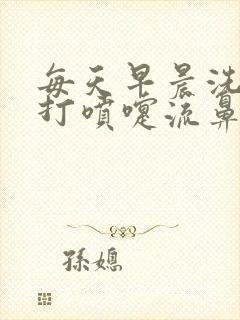 每天早晨洗
打噴嚏流鼻
孫媳